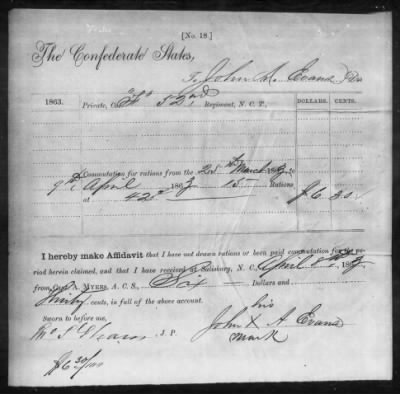 [No. 18.]
The Confederate States,
To John A. Evans Dr.
1863.
Private, C. "F" 52nd Regiment, N. C. T.,
DOLLARS. CENTS.
Commutation for rations from the 25th March 1863 to
9th April 1863 15 Rations
at 42c $6.30
I hereby make Affidavit that I have not drawn rations or been paid commutation for the pe-
riod herein claimed, and that I have received at Salisbury, N. C., April 8th, 1863
from Capt. A. Myers, A. C. S., Six Dollars and
Thirty cents, in full of the above account.
Sworn to before me,
J. P.
his
John X A Evans
mark
$6 30/100